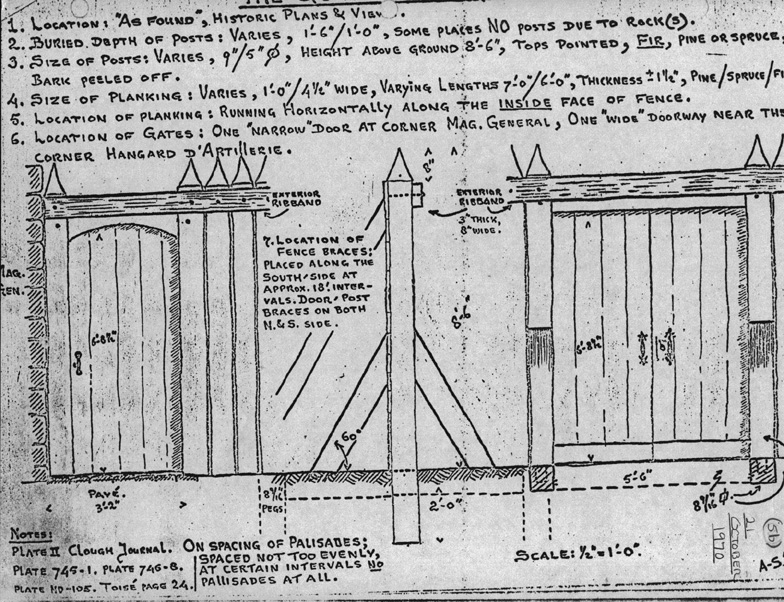 1. LOCATION: "AS FOUND", HISTORIC PLANS & VIEW.
2. BURIED DEPTH OF POSTS: VARIES, 1'-6"/1'-0", SOME PLACES NO POSTS DUE TO ROCK(S).
3. SIZE OF POSTS: VARIES, 9"/5" Ø, HEIGHT ABOVE GROUND 8'-6", TOPS POINTED, FIR, PINE OR SPRUCE,
BARK PEELED OFF.
4. SIZE OF PLANKING: VARIES, 1'-0"/4½" WIDE, VARYING LENGTHS 7'-0"/6'-0", THICKNESS ±1½", PINE/SPRUCE/FI
5. LOCATION OF PLANKING: RUNNING HORIZONTALLY ALONG THE INSIDE FACE OF FENCE.
6. LOCATION OF GATES: ONE "NARROW" DOOR AT CORNER MAG. GENERAL, ONE "WIDE" DOORWAY NEAR THE
CORNER HANGARD D'ARTILLERIE.
8"
EXTERIOR
RIBBAND
EXTERIOR
RIBBAND
3" THICK,
8" WIDE.
7. LOCATION OF
FENCE BRACES;
PLACED ALONG THE
SOUTH-SIDE AT
APPROX. 18' INTER-
VALS. DOOR-POST
BRACES ON BOTH
N.&S. SIDE.
MAG.
GEN.
8'-6"
60°
PAVÉ.
3'-2"
PEGS
2'-0"
5'-6"
NOTES:
PLATE II CLOUGH JOURNAL.
PLATE 745-1. PLATE 746-8.
PLATE HD-105. TOISÉ PAGE 24.
ON SPACING OF PALISADES;
SPACED NOT TOO EVENLY,
AT CERTAIN INTERVALS NO
PALLISADES AT ALL.
SCALE: ½"=1'-0".
(5b)
21
OCTOBER
1970
A-5